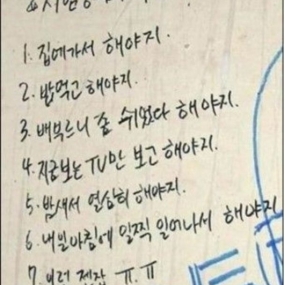 1. 집에가서 해야지.
2. 밥먹고 해야지.
3. 배부르니 좀 쉬었다 해야지.
4. 지금보는 TV만 보고 해야지.
5. 밤새서 열심히 해야지.
6. 내일아침에 일찍 일어나서 해야지
7. ㅠ.ㅠ